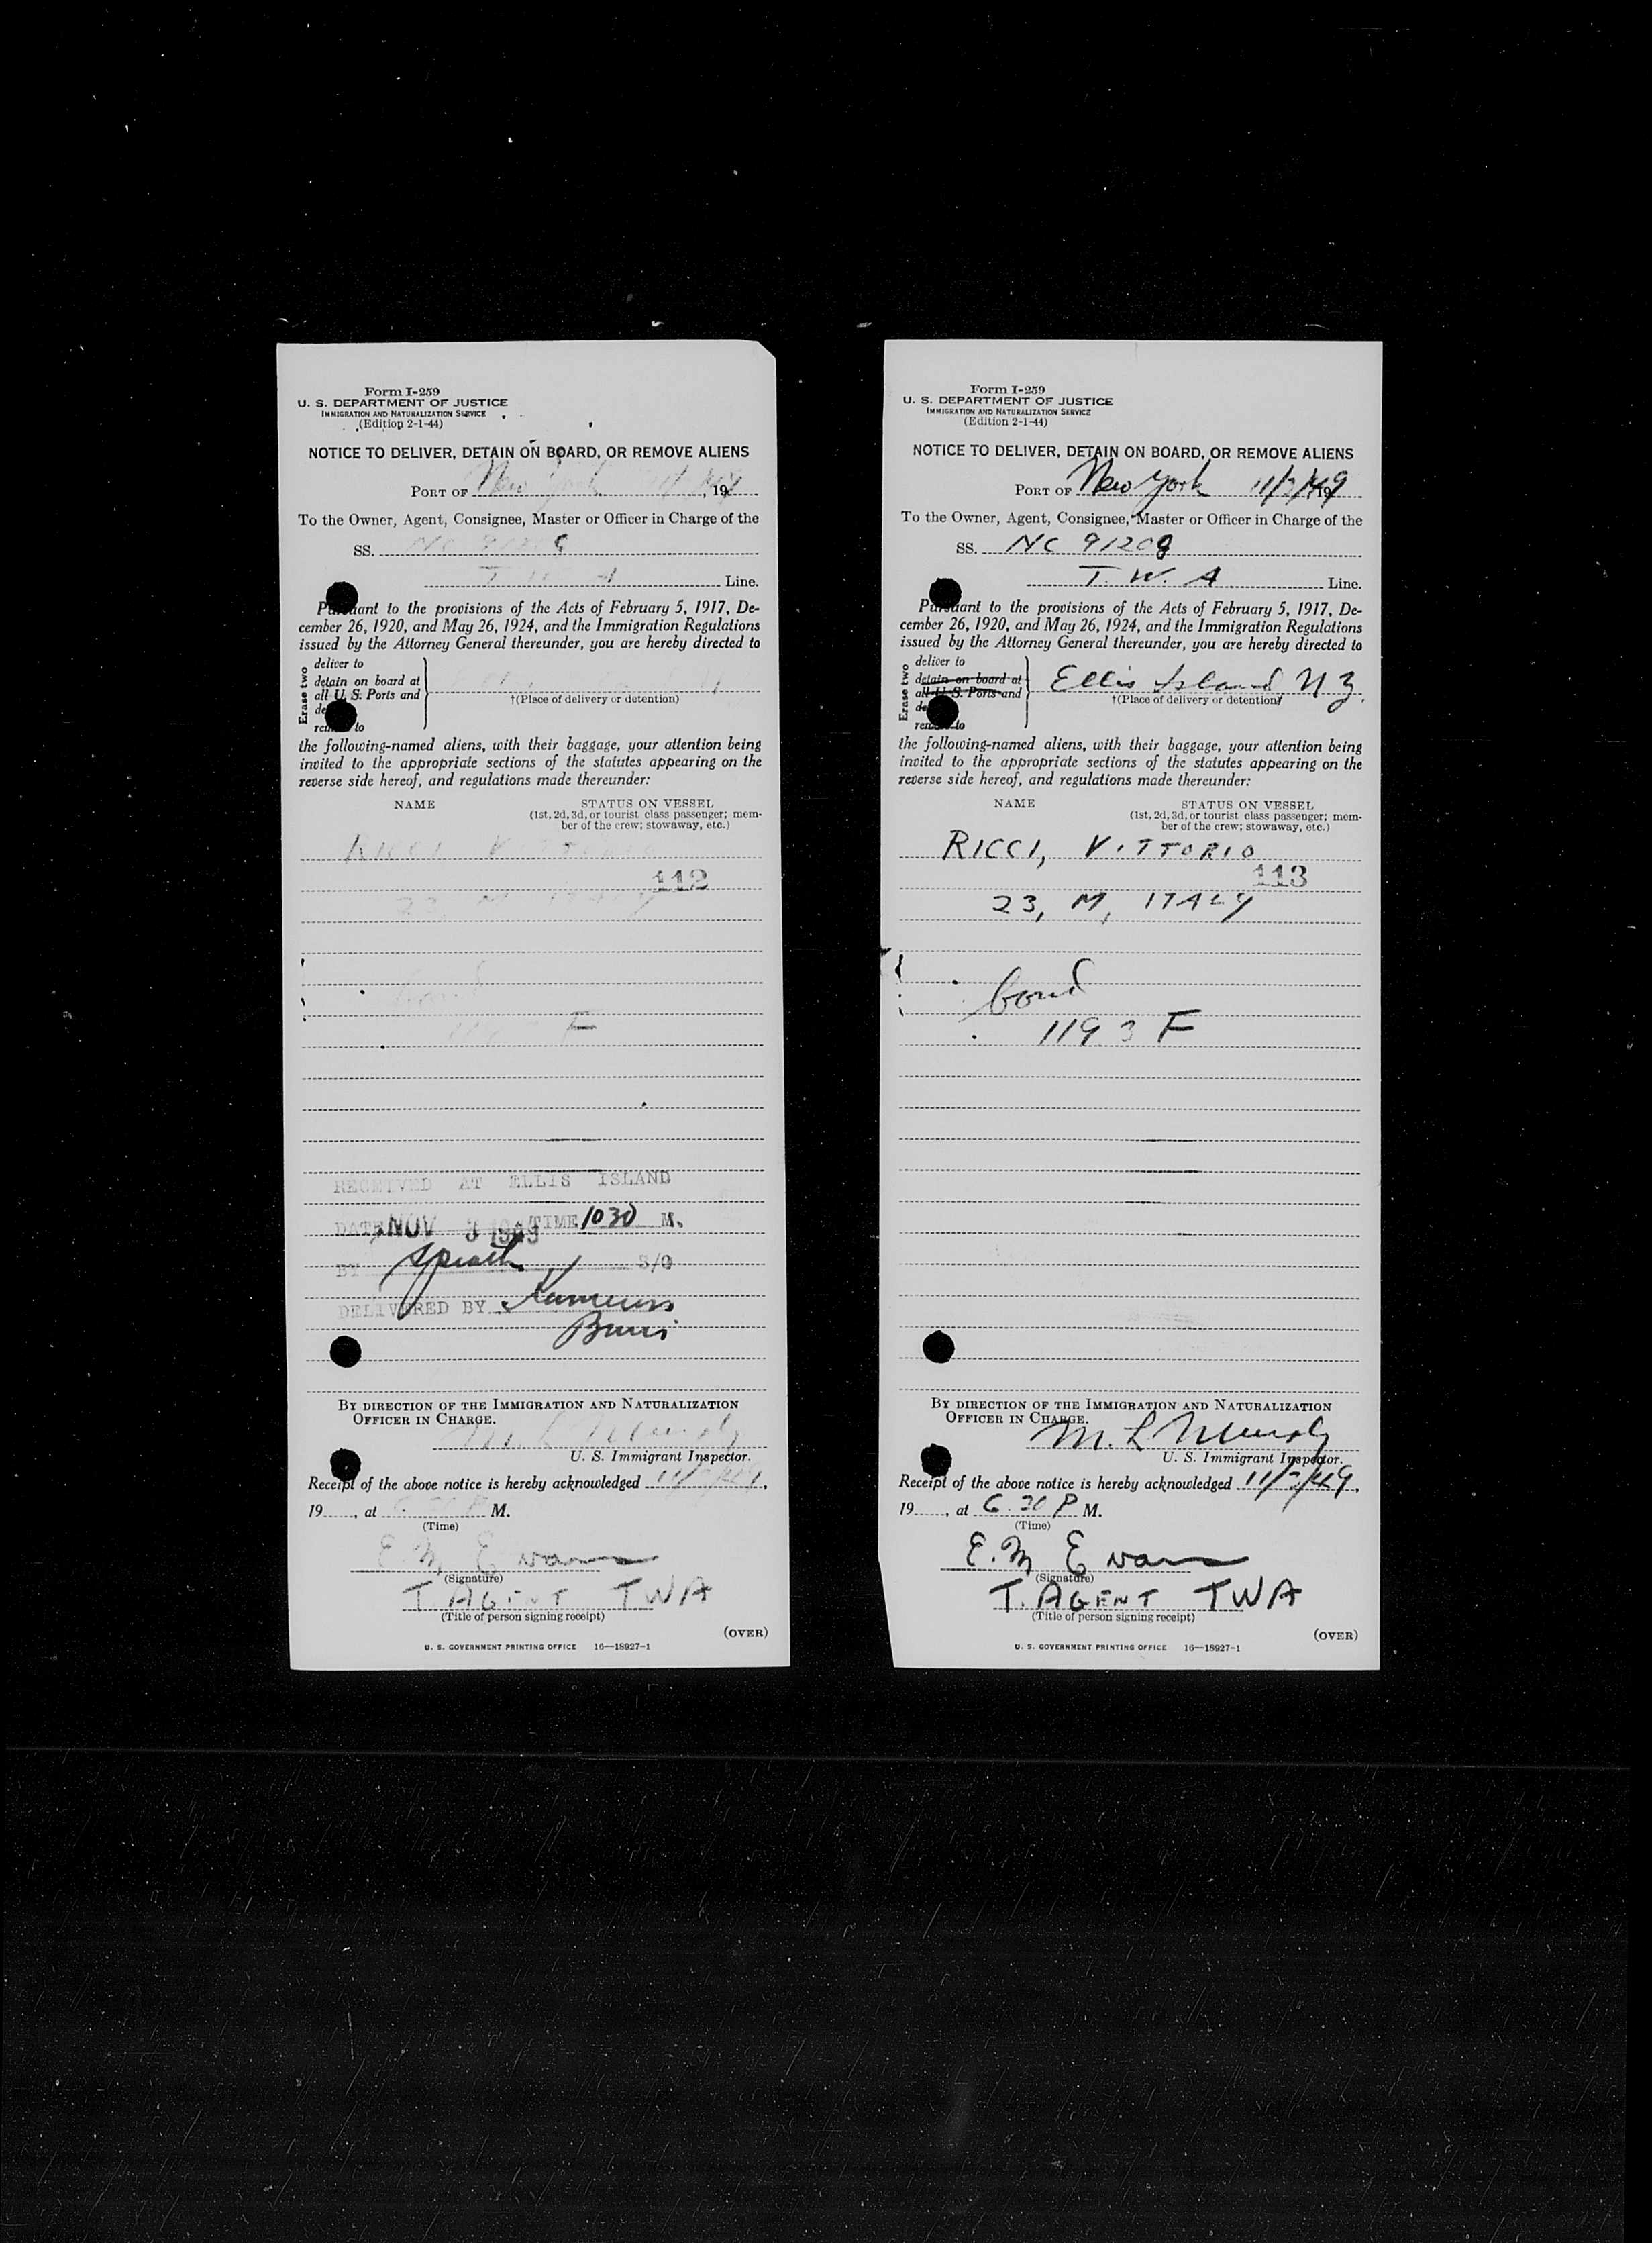 Form I-259
U. S. DEPARTMENT OF JUSTICE
IMMIGRATION AND NATURALIZATION SERVICE
(Edition 2-1-44)
NOTICE TO DELIVER, DETAIN ON BOARD, OR REMOVE ALIENS
PORT OF New York 11/ /49, 19
To the Owner, Agent, Consignee, Master or Officer in Charge of the
SS. NC 91208
T W A Line.
Pursuant to the provisions of the Acts of February 5, 1917, De-
cember 26, 1920, and May 26, 1924, and the Immigration Regulations
issued by the Attorney General thereunder, you are hereby directed to
Erase two
deliver to
detain on board at
all U. S. Ports and
†(Place of delivery or detention)
remove to
the following-named aliens, with their baggage, your attention being
invited to the appropriate sections of the statutes appearing on the
reverse side hereof, and regulations made thereunder:
NAME STATUS ON VESSEL
(1st, 2d, 3d, or tourist class passenger; mem-
ber of the crew; stowaway, etc.)
RICCI VITTORIO
112
23 M ITALY
bond
F
RECEIVED AT ELLIS ISLAND
DATE NOV 3 1949 TIME 1030 M.
BY S/O
DELIVERED BY
BY DIRECTION OF THE IMMIGRATION AND NATURALIZATION
OFFICER IN CHARGE.
M. L
U. S. Immigrant Inspector.
Receipt of the above notice is hereby acknowledged 11/ /49,
19, at 6.30 P M.
(Time)
E. M Evans
(Signature)
T. AGENT TWA
(Title of person signing receipt)
(OVER)
U. S. GOVERNMENT PRINTING OFFICE 16—18927-1
Form I-259
U. S. DEPARTMENT OF JUSTICE
IMMIGRATION AND NATURALIZATION SERVICE
(Edition 2-1-44)
NOTICE TO DELIVER, DETAIN ON BOARD, OR REMOVE ALIENS
PORT OF New York 11/2/49
To the Owner, Agent, Consignee, Master or Officer in Charge of the
SS. NC 91208
T. W. A Line.
Pursuant to the provisions of the Acts of February 5, 1917, De-
cember 26, 1920, and May 26, 1924, and the Immigration Regulations
issued by the Attorney General thereunder, you are hereby directed to
Erase two
deliver to
detain on board at
all U. S. Ports and
Ellis Island, N Y.
†(Place of delivery or detention)
remove to
the following-named aliens, with their baggage, your attention being
invited to the appropriate sections of the statutes appearing on the
reverse side hereof, and regulations made thereunder:
NAME STATUS ON VESSEL
(1st, 2d, 3d, or tourist class passenger; mem-
ber of the crew; stowaway, etc.)
RICCI, VITTORIO
113
23, M, ITALY
bond
1193 F
BY DIRECTION OF THE IMMIGRATION AND NATURALIZATION
OFFICER IN CHARGE.
M. L
U. S. Immigrant Inspector.
Receipt of the above notice is hereby acknowledged 11/2/49,
19, at 6.30 P M.
(Time)
E. M Evans
(Signature)
T. AGENT TWA
(Title of person signing receipt)
(OVER)
U. S. GOVERNMENT PRINTING OFFICE 16—18927-1